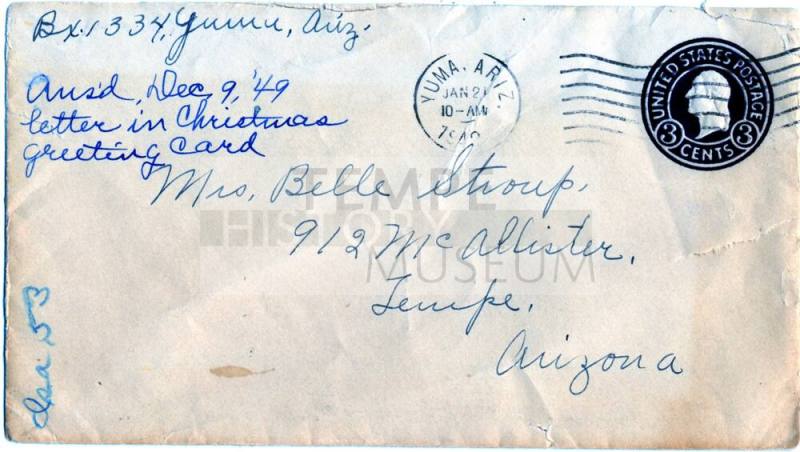 Bx. 1334, Yuma, Ariz.
Ans'd, Dec 9, '49
letter in Christmas
greeting card
YUMA, ARIZ.
JAN 21
10-AM
UNITED STATES POSTAGE
3 CENTS 3
Mrs. Belle Stroup.
912 McAllister.
Tempe.
Arizona
TEMPE
HISTORY
MUSEUM
53